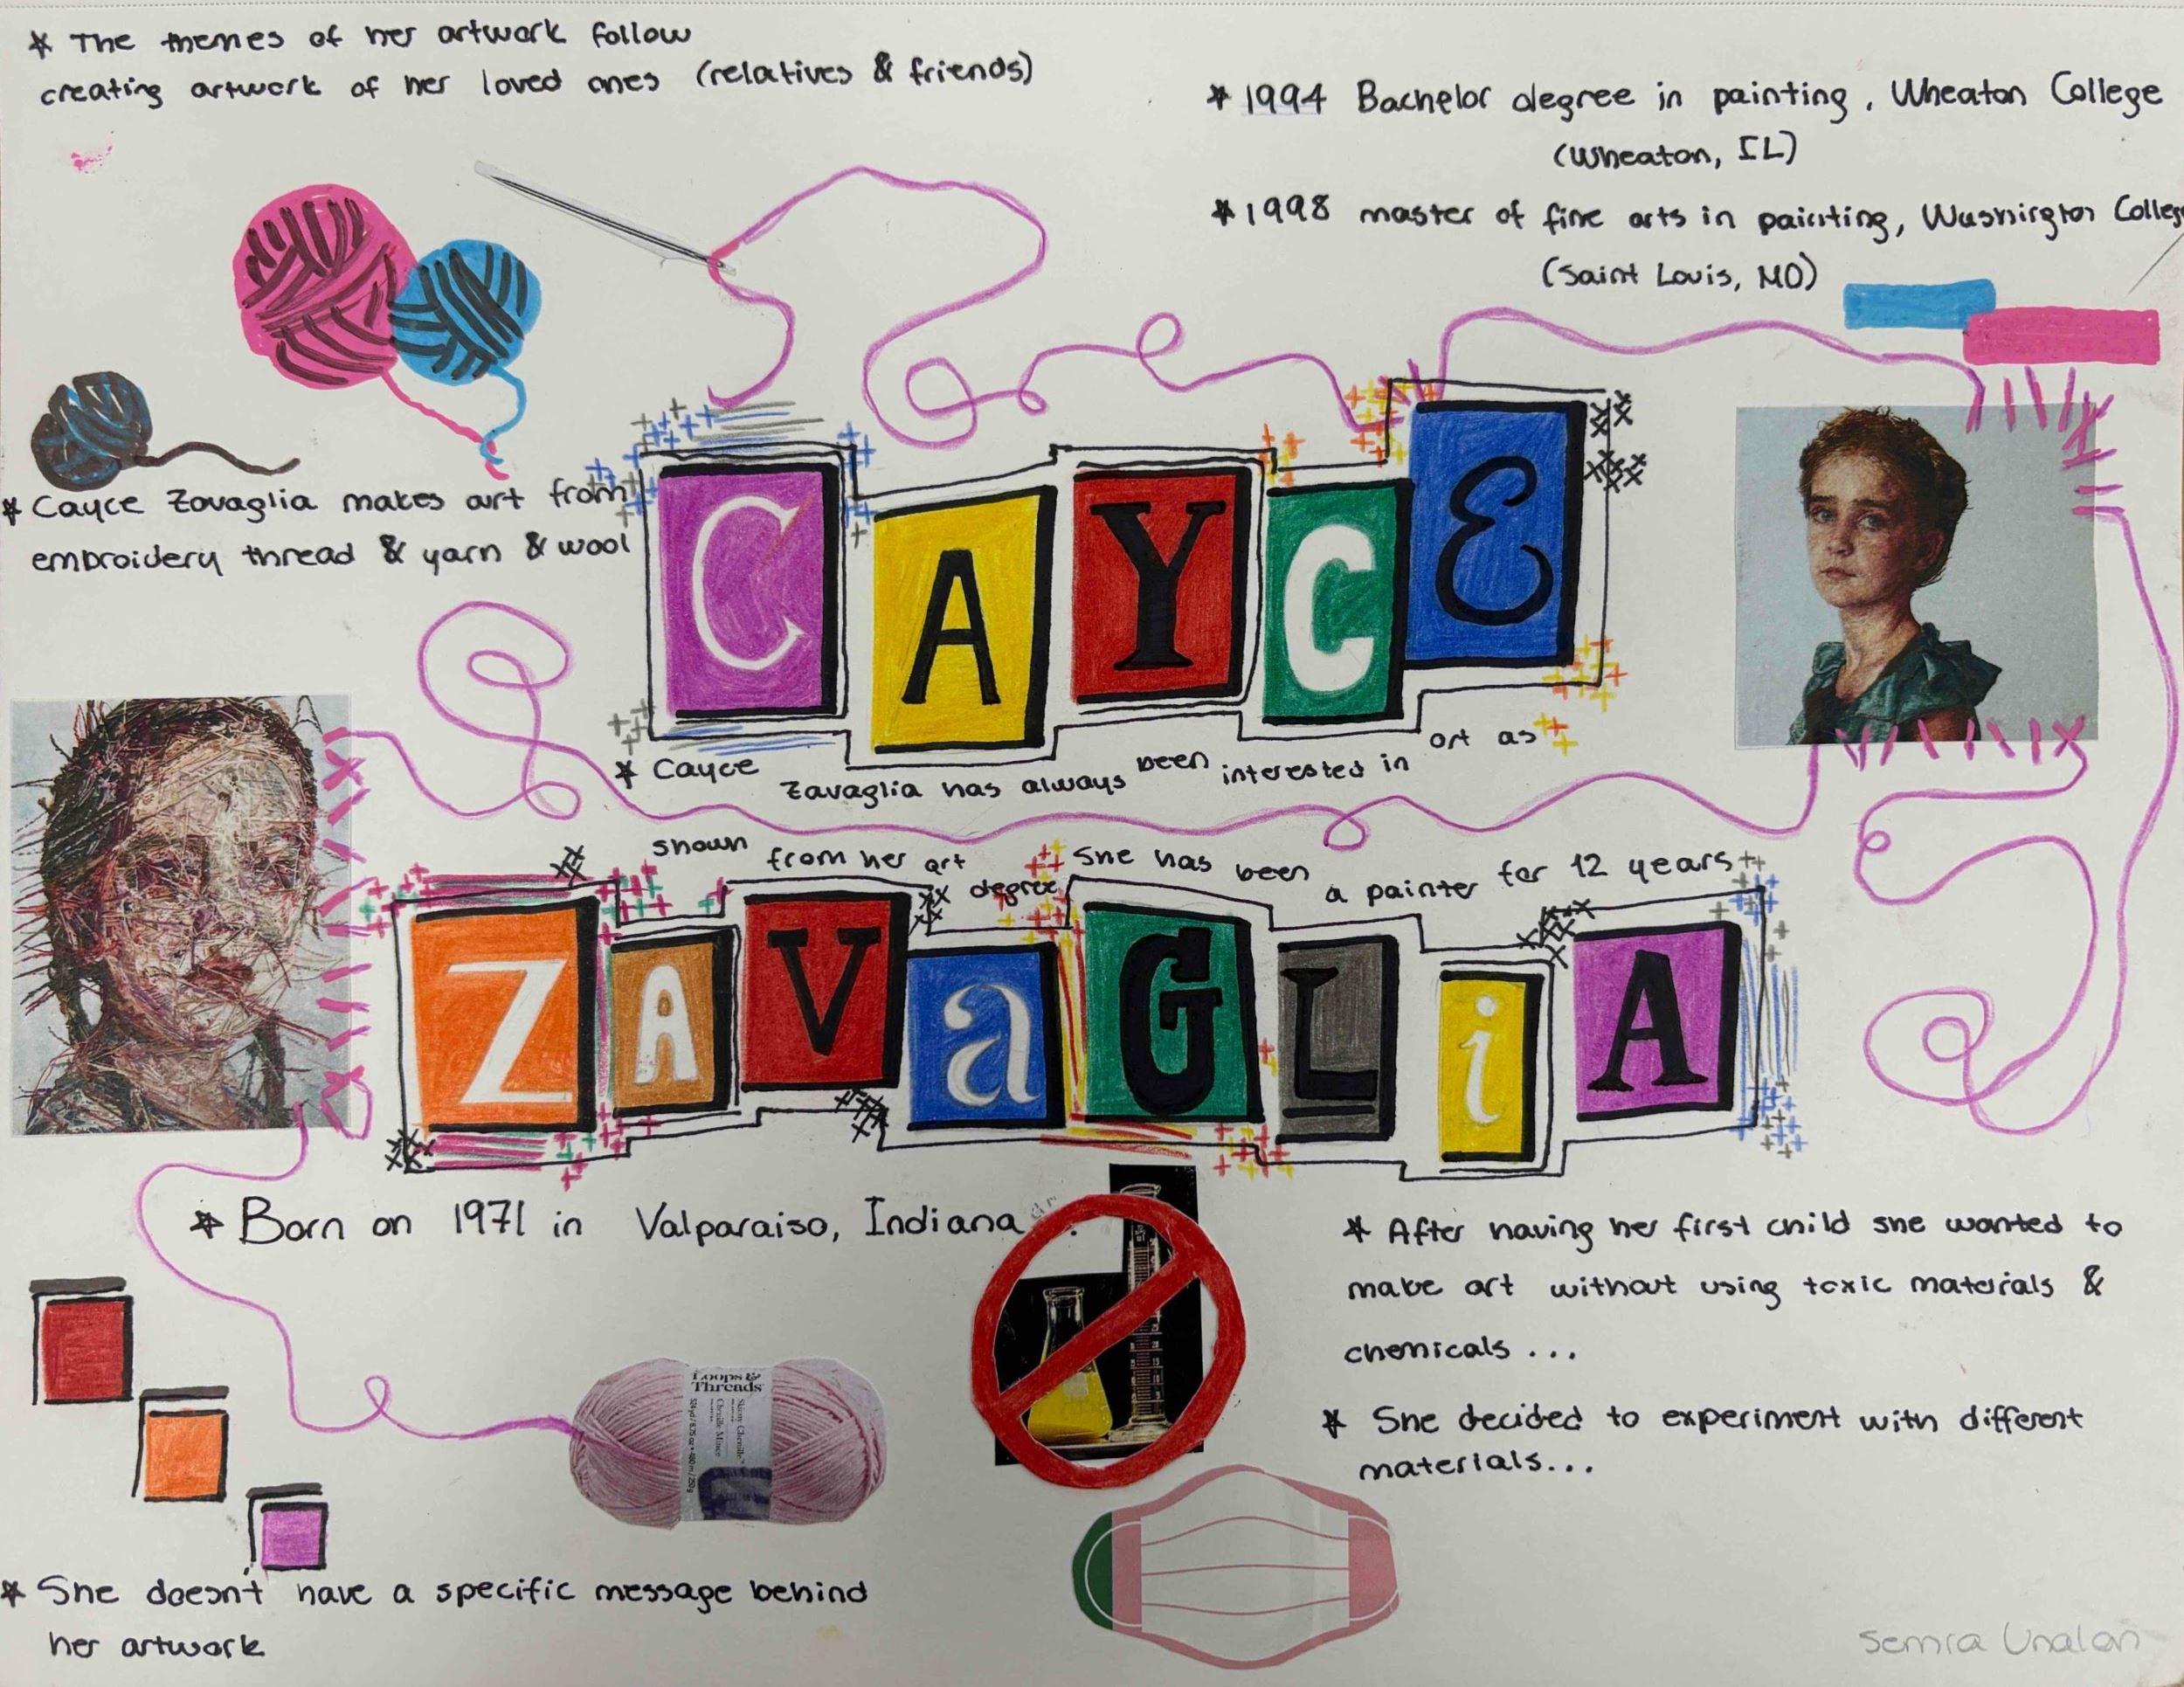 * The themes of her artwork follow
creating artwork of her loved ones (relatives & friends)
* 1994 Bachelor degree in painting, Wheaton College
(Wheaton, IL)
* 1998 master of fine arts in painting, Washington Colleg
(Saint Louis, MO)
* Cayce Zavaglia makes art from
embroidery thread & yarn & wool
CAYCE
* Cayce Zavaglia has always been interested in art as
shown from her art degree
She has been a painter for 12 years
ZAVaGLiA
* Born on 1971 in Valparaiso, Indiana
* After having her first child she wanted to
make art without using toxic materials &
chemicals ...
* She decided to experiment with different
materials...
Loops &
Threads
* She doesn't have a specific message behind
her artwork
Semra Unalan